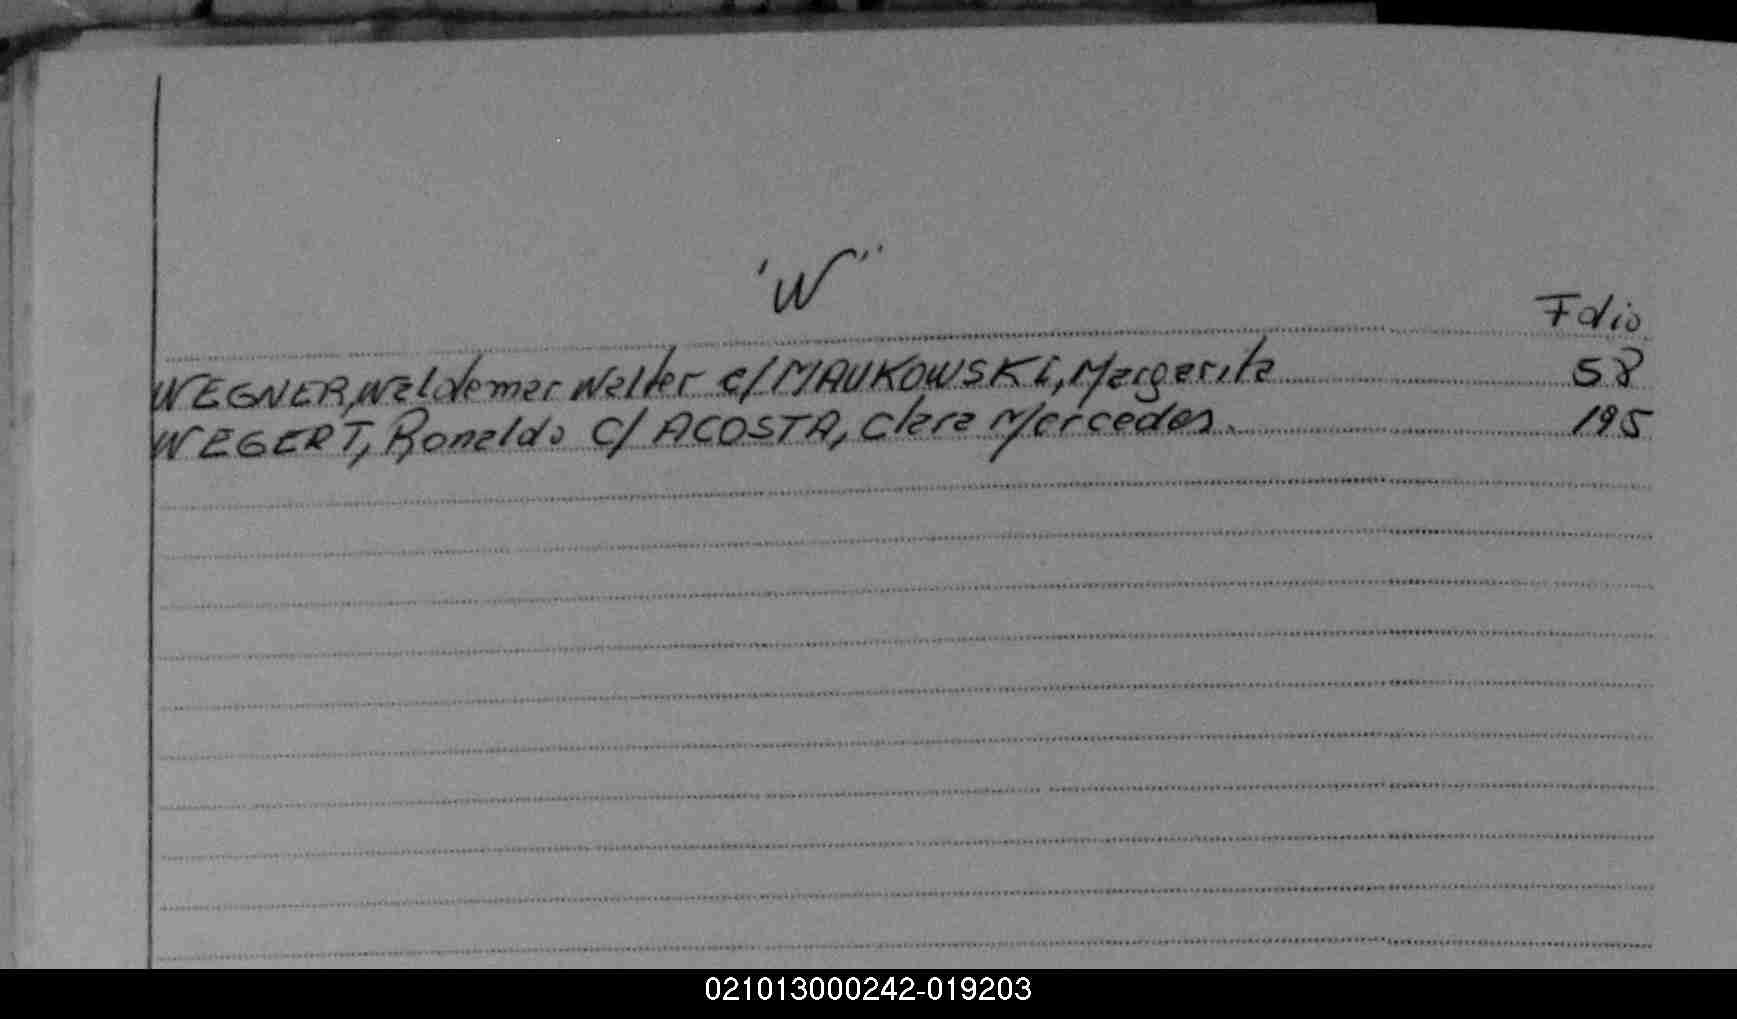 "W"
Folio
WEGNER, Waldemar Walter c/ MAUKOWSKI, Margarita 58
WEGERT, Ronaldo C/ ACOSTA, Clara Mercedes. 195
021013000242-019203